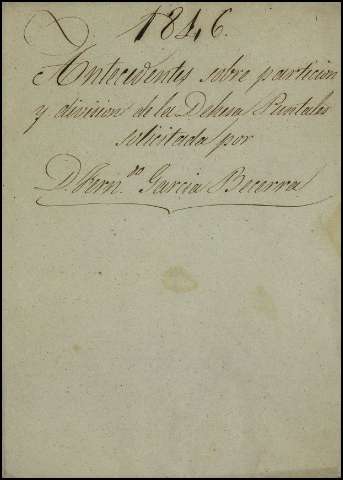 1846.
Antecedentes sobre particion
y division de la Dehesa Puntales
solicitada por
D. Fern.do Garcia Becerra